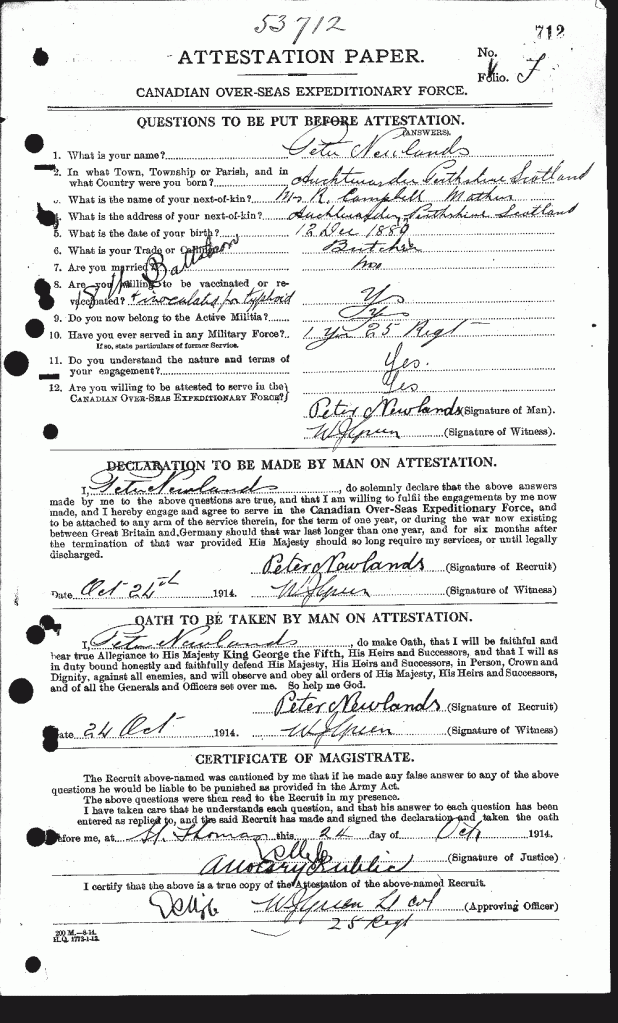 53712
712
ATTESTATION PAPER.
No.
Folio. F
CANADIAN OVER-SEAS EXPEDITIONARY FORCE.
QUESTIONS TO BE PUT BEFORE ATTESTATION.
(ANSWERS).
1. What is your name? Peter Newlands
2. In what Town, Township or Parish, and in
what Country were you born? Auchterarder Perthshire Scotland
What is the name of your next-of-kin? Mrs R. Campbell Mother
4. What is the address of your next-of-kin? Auchterarder, Perthshire Scotland
5. What is the date of your birth? 12 Dec 1889
6. What is your Trade or Calling? Butcher
7. Are you married? no
Battalion
8. Are you willing to be vaccinated or re-
vaccinated? + inoculated for typhoid Yes
9. Do you now belong to the Active Militia? Yes
10. Have you ever served in any Military Force? 1 Yr 25 Regt
If so, state particulars of former Service.
11. Do you understand the nature and terms of
your engagement? Yes.
12. Are you willing to be attested to serve in the
CANADIAN OVER-SEAS EXPEDITIONARY FORCE? Yes
Peter Newlands (Signature of Man).
WJGreen (Signature of Witness).
DECLARATION TO BE MADE BY MAN ON ATTESTATION.
I, Peter Newlands, do solemnly declare that the above answers
made by me to the above questions are true, and that I am willing to fulfil the engagements by me now
made, and I hereby engage and agree to serve in the Canadian Over-Seas Expeditionary Force, and
to be attached to any arm of the service therein, for the term of one year, or during the war now existing
between Great Britain and Germany should that war last longer than one year, and for six months after
the termination of that war provided His Majesty should so long require my services, or until legally
discharged.
Peter Newlands (Signature of Recruit)
Date Oct 24th 1914. WJGreen (Signature of Witness)
OATH TO BE TAKEN BY MAN ON ATTESTATION.
I, Peter Newlands, do make Oath, that I will be faithful and
bear true Allegiance to His Majesty King George the Fifth, His Heirs and Successors, and that I will as
in duty bound honestly and faithfully defend His Majesty, His Heirs and Successors, in Person, Crown and
Dignity, against all enemies, and will observe and obey all orders of His Majesty, His Heirs and Successors,
and of all the Generals and Officers set over me. So help me God.
Peter Newlands (Signature of Recruit)
Date 24 Oct 1914. WJGreen (Signature of Witness)
CERTIFICATE OF MAGISTRATE.
The Recruit above-named was cautioned by me that if he made any false answer to any of the above
questions he would be liable to be punished as provided in the Army Act.
The above questions were then read to the Recruit in my presence.
I have taken care that he understands each question, and that his answer to each question has been
entered as replied to, and the said Recruit has made and signed the declaration and taken the oath
before me, at St. Thomas this 24 day of Oct, 1914.
(Signature of Justice)
Public
I certify that the above is a true copy of the Attestation of the above-named Recruit.
WJGreen Lt Col (Approving Officer)
25 Regt
200 M.—8-14.
H.Q. 1772-1-13.